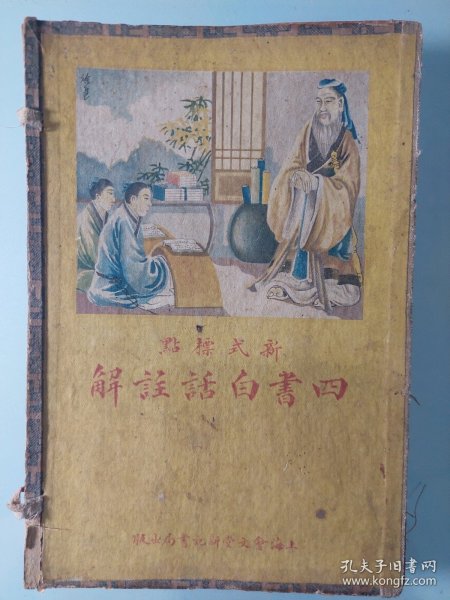 新式標點
四書白話註解
上海會文堂新記書局出版
孔夫子旧书网
www.kongfz.com